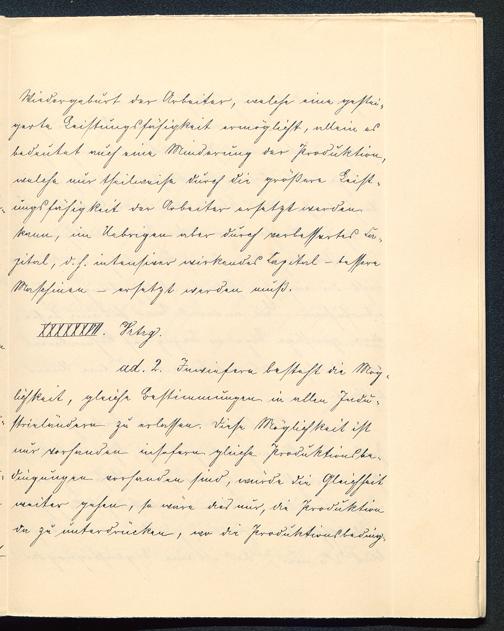 Wiedergeburt der Arbeiter, welche eine gestei-
gerte Leistungsfähigkeit ermöglicht, allein es
bedeutet auch eine Minderung der Produktion,
welche nur theilweise durch die größere Leist-
ungsfähigkeit der Arbeiter ersetzt werden
kann, im Uebrigen aber durch verbessertes Ca-
pital, d.h. intensiver wirkendes Capital – bessere
Maschinen – ersetzt werden muß.
ad. 2. Inwiefern besteht die Mög-
lichkeit, gleiche Bestimmungen in allen Indu-
strieländern zu erlassen. Diese Möglichkeit ist
nur vorhanden insofern gleiche Produktionsbe-
dingungen vorhanden sind, würde die Gleichheit
weiter gehen, so wäre dies nur, die Produktion
da zu unterdrücken, wo die Produktionsbeding-